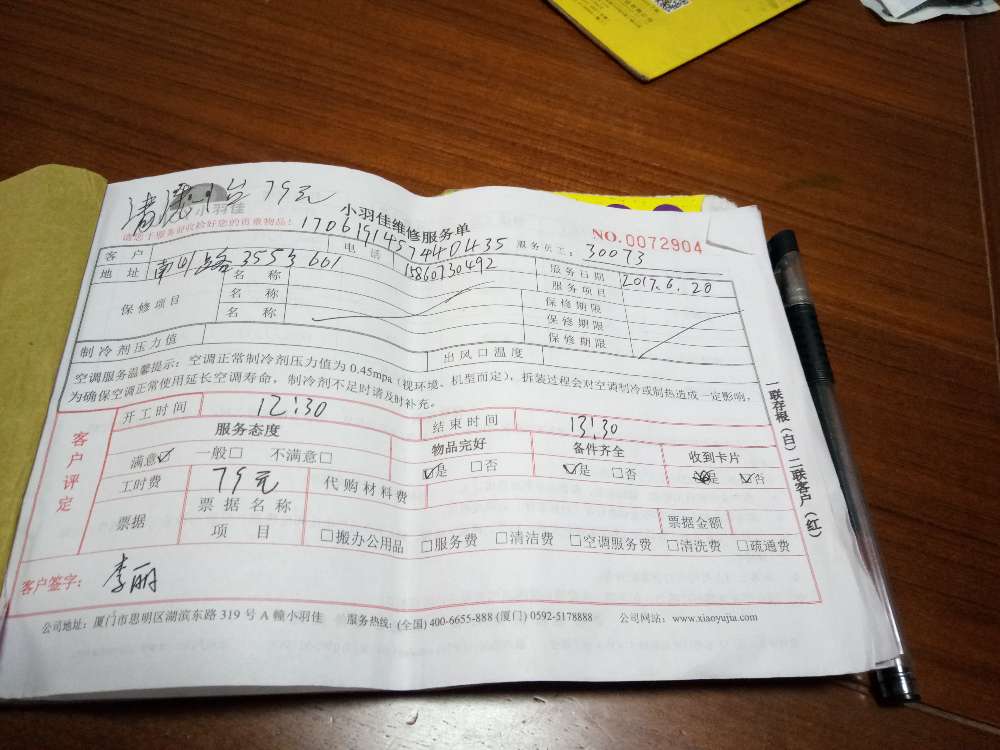 清洗1台 79元
小羽佳
小羽佳维修服务单
NO.0072904
请您于服务前收拾好您的贵重物品：
1706151457440435
服务员工：30073
客户
电话
15860730492
服务日期
2017.6.20
地址
355号601
服务项目
保修项目
名称
保修期限
名称
保修期限
名称
保修期限
制冷剂压力值
出风口温度
空调服务温馨提示：空调正常制冷剂压力值为0.45mpa（视环境、机型而定），拆装过程会对空调制冷或制热造成一定影响，
为确保空调正常使用延长空调寿命，制冷剂不足时请及时补充。
客户评定
开工时间
12:30
结束时间
13:30
服务态度
物品完好
备件齐全
收到卡片
满意☑ 一般□ 不满意□
☑是 □否
☑是 □否
是 ☑否
工时费
79元
代购材料费
票据
票据名称
票据金额
项目
□搬办公用品 □服务费 □清洁费 □空调服务费 □清洗费 □疏通费
客户签字：李丽
公司地址：厦门市思明区湖滨东路319号A幢小羽佳 服务热线：(全国) 400-6655-888 (厦门) 0592-5178888 公司网站：www.xiaoyujia.com
一联存根（白）二联客户（红）